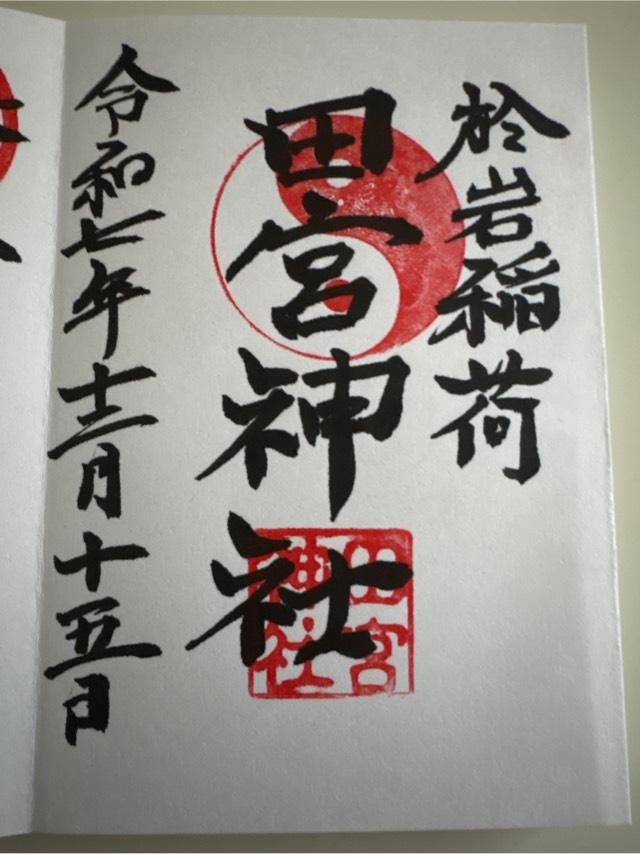 於岩稲荷
田宮神社
田宮
神社
令和七年十二月十五日